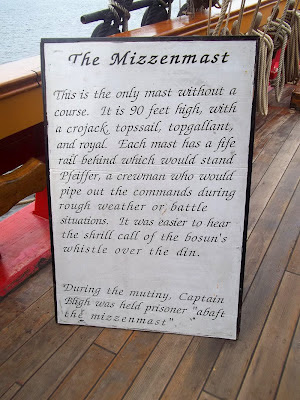 The Mizzenmast
This is the only mast without a
course. It is 90 feet high, with
a crojack, topssail, topgallant,
and royal. Each mast has a fife
rail behind which would stand
Pfeiffer, a crewman who would
pipe out the commands during
rough weather or battle
situations. It was easier to hear
the shrill call of the bosun's
whistle over the din.
During the mutiny, Captain
Bligh was held prisoner "abaft
the mizzenmast"